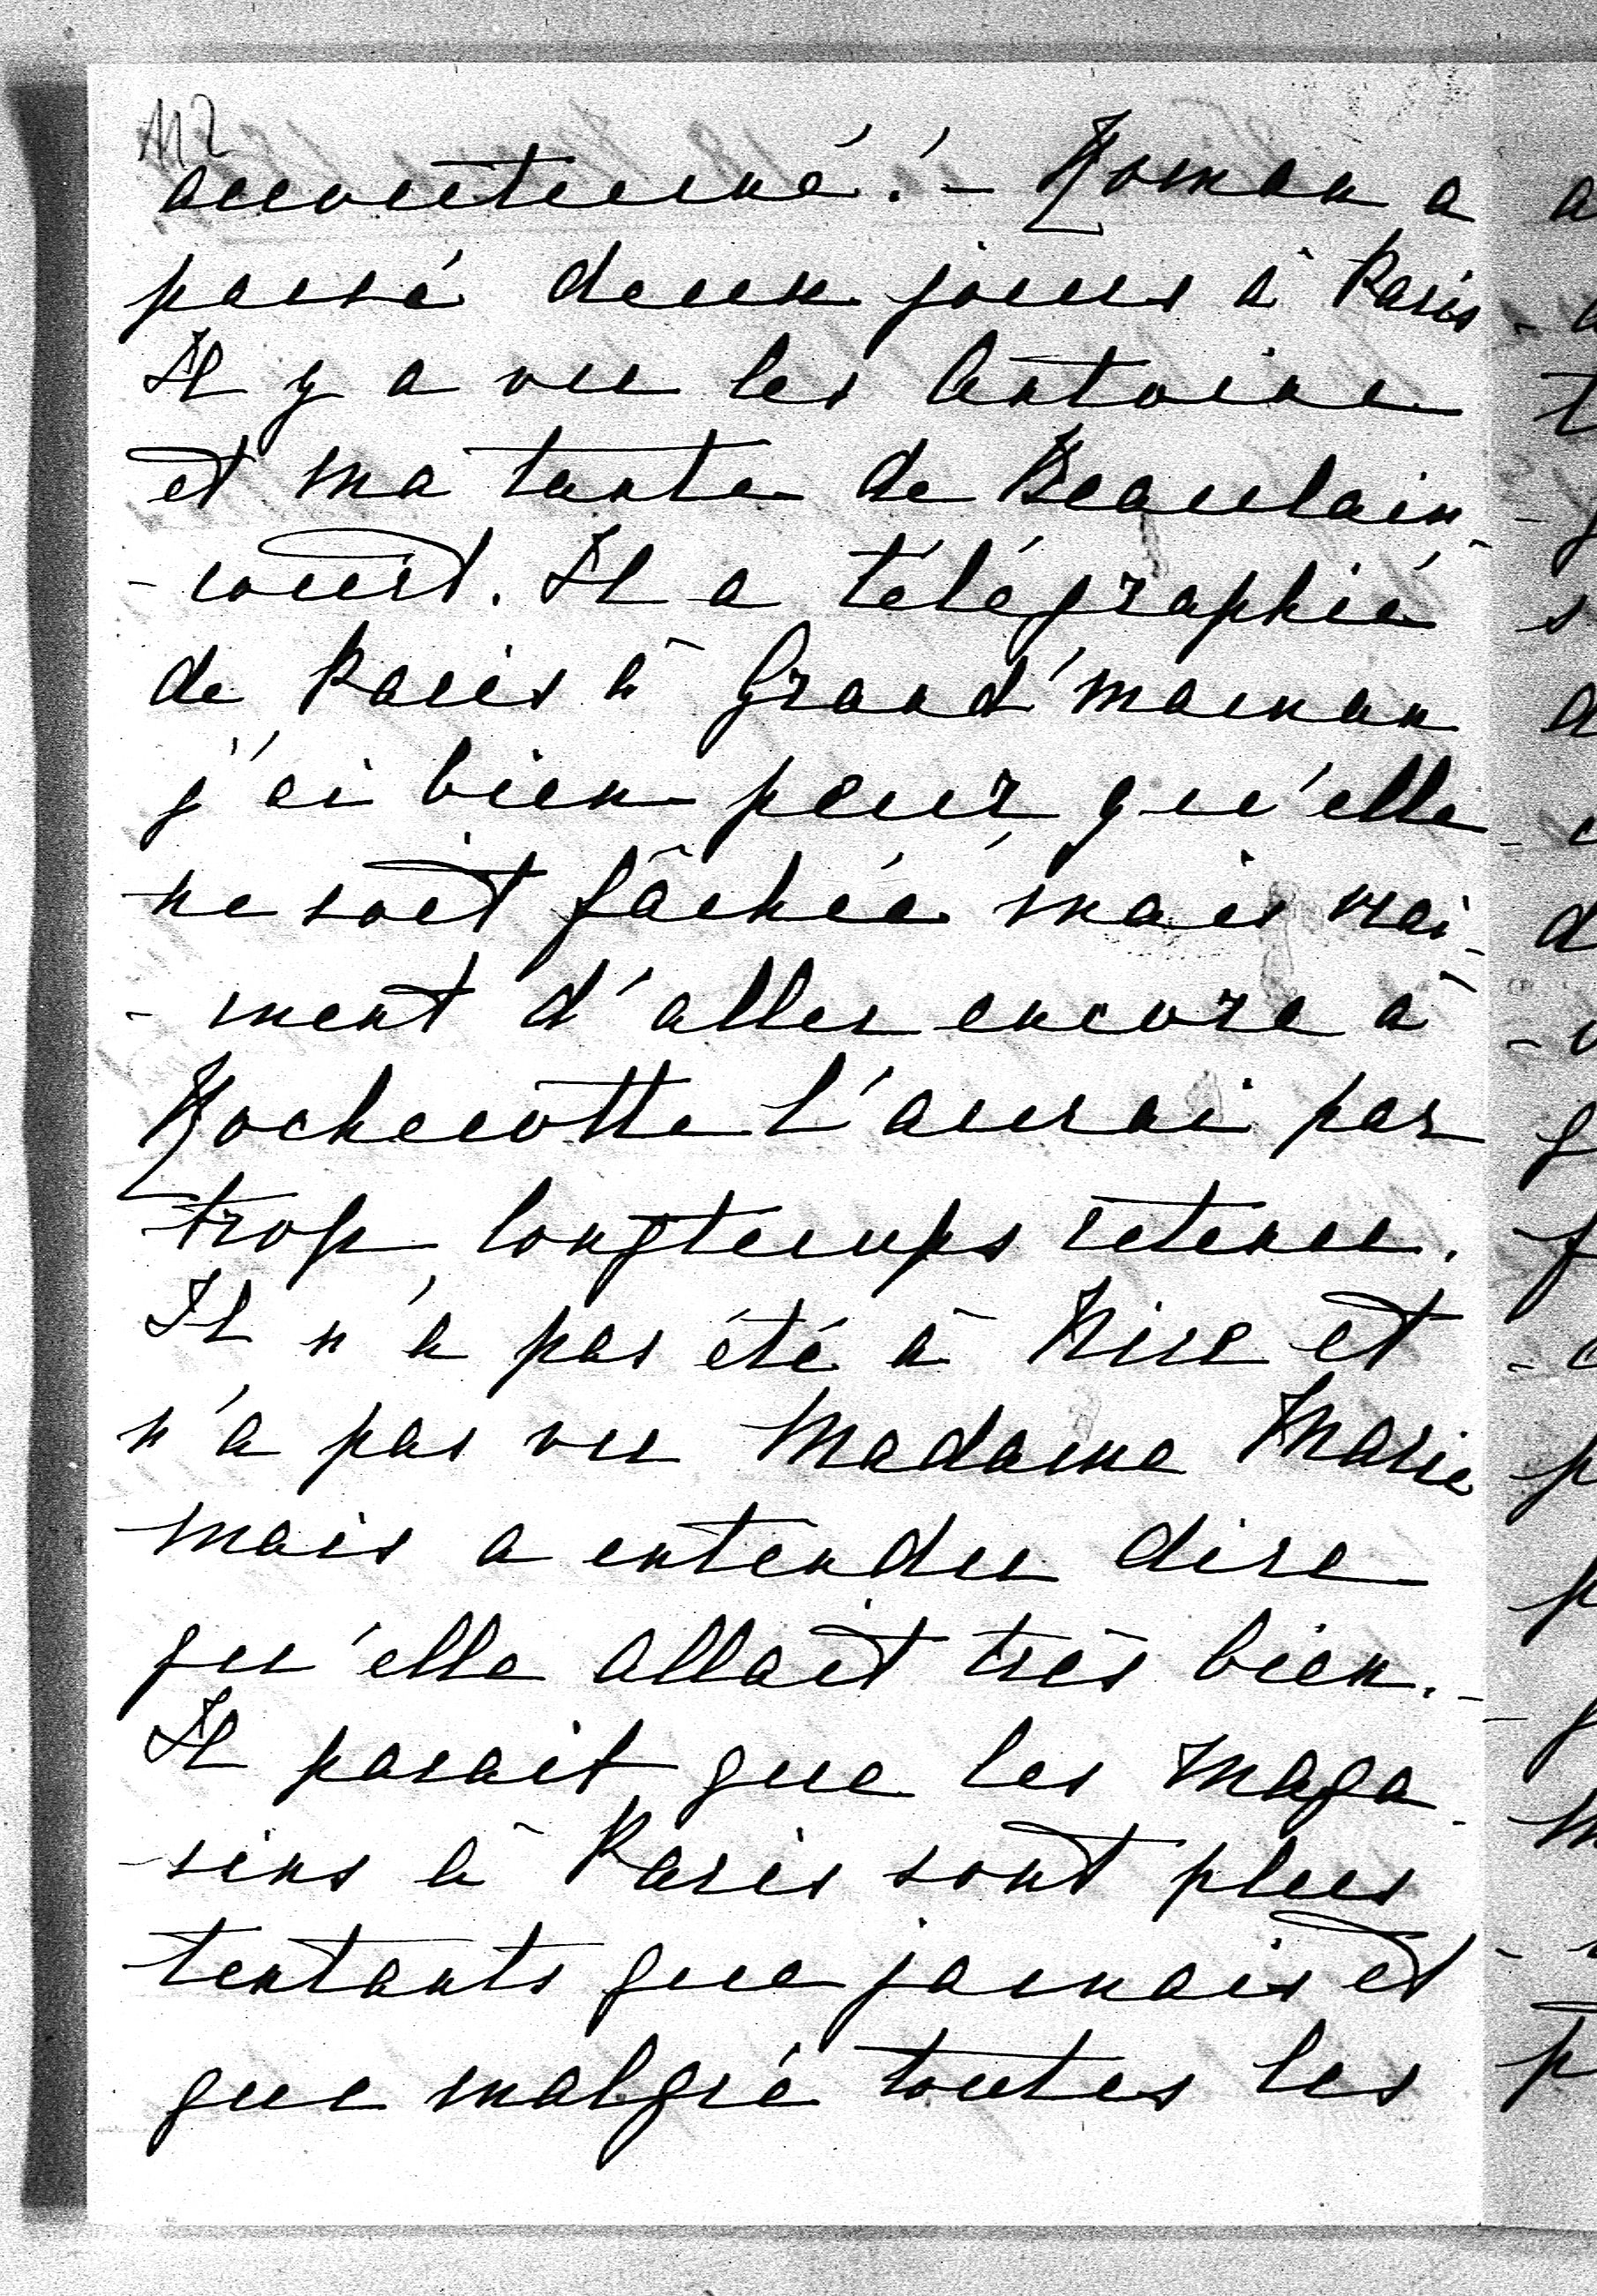 112
accoutumé! - Roman a
passé deux jours à Paris -
Il y a vu les Antoine
et ma tante de Beaulain-
-court. Il a télégraphié
de Paris à Grand'maman
j'ai bien peur qu'elle
ne soit fâchée mais vrai-
-ment d'aller encore à
Rochecotte l'aurai par
trop longtemps retenu.
Il n'a pas été à Nice et
n'a pas vu Madame Marie
mais a entendu dire
qu'elle allait très bien. -
Il parait que les maga-
-sins à Paris sont plus
tentants que jamais et
que malgré toutes les